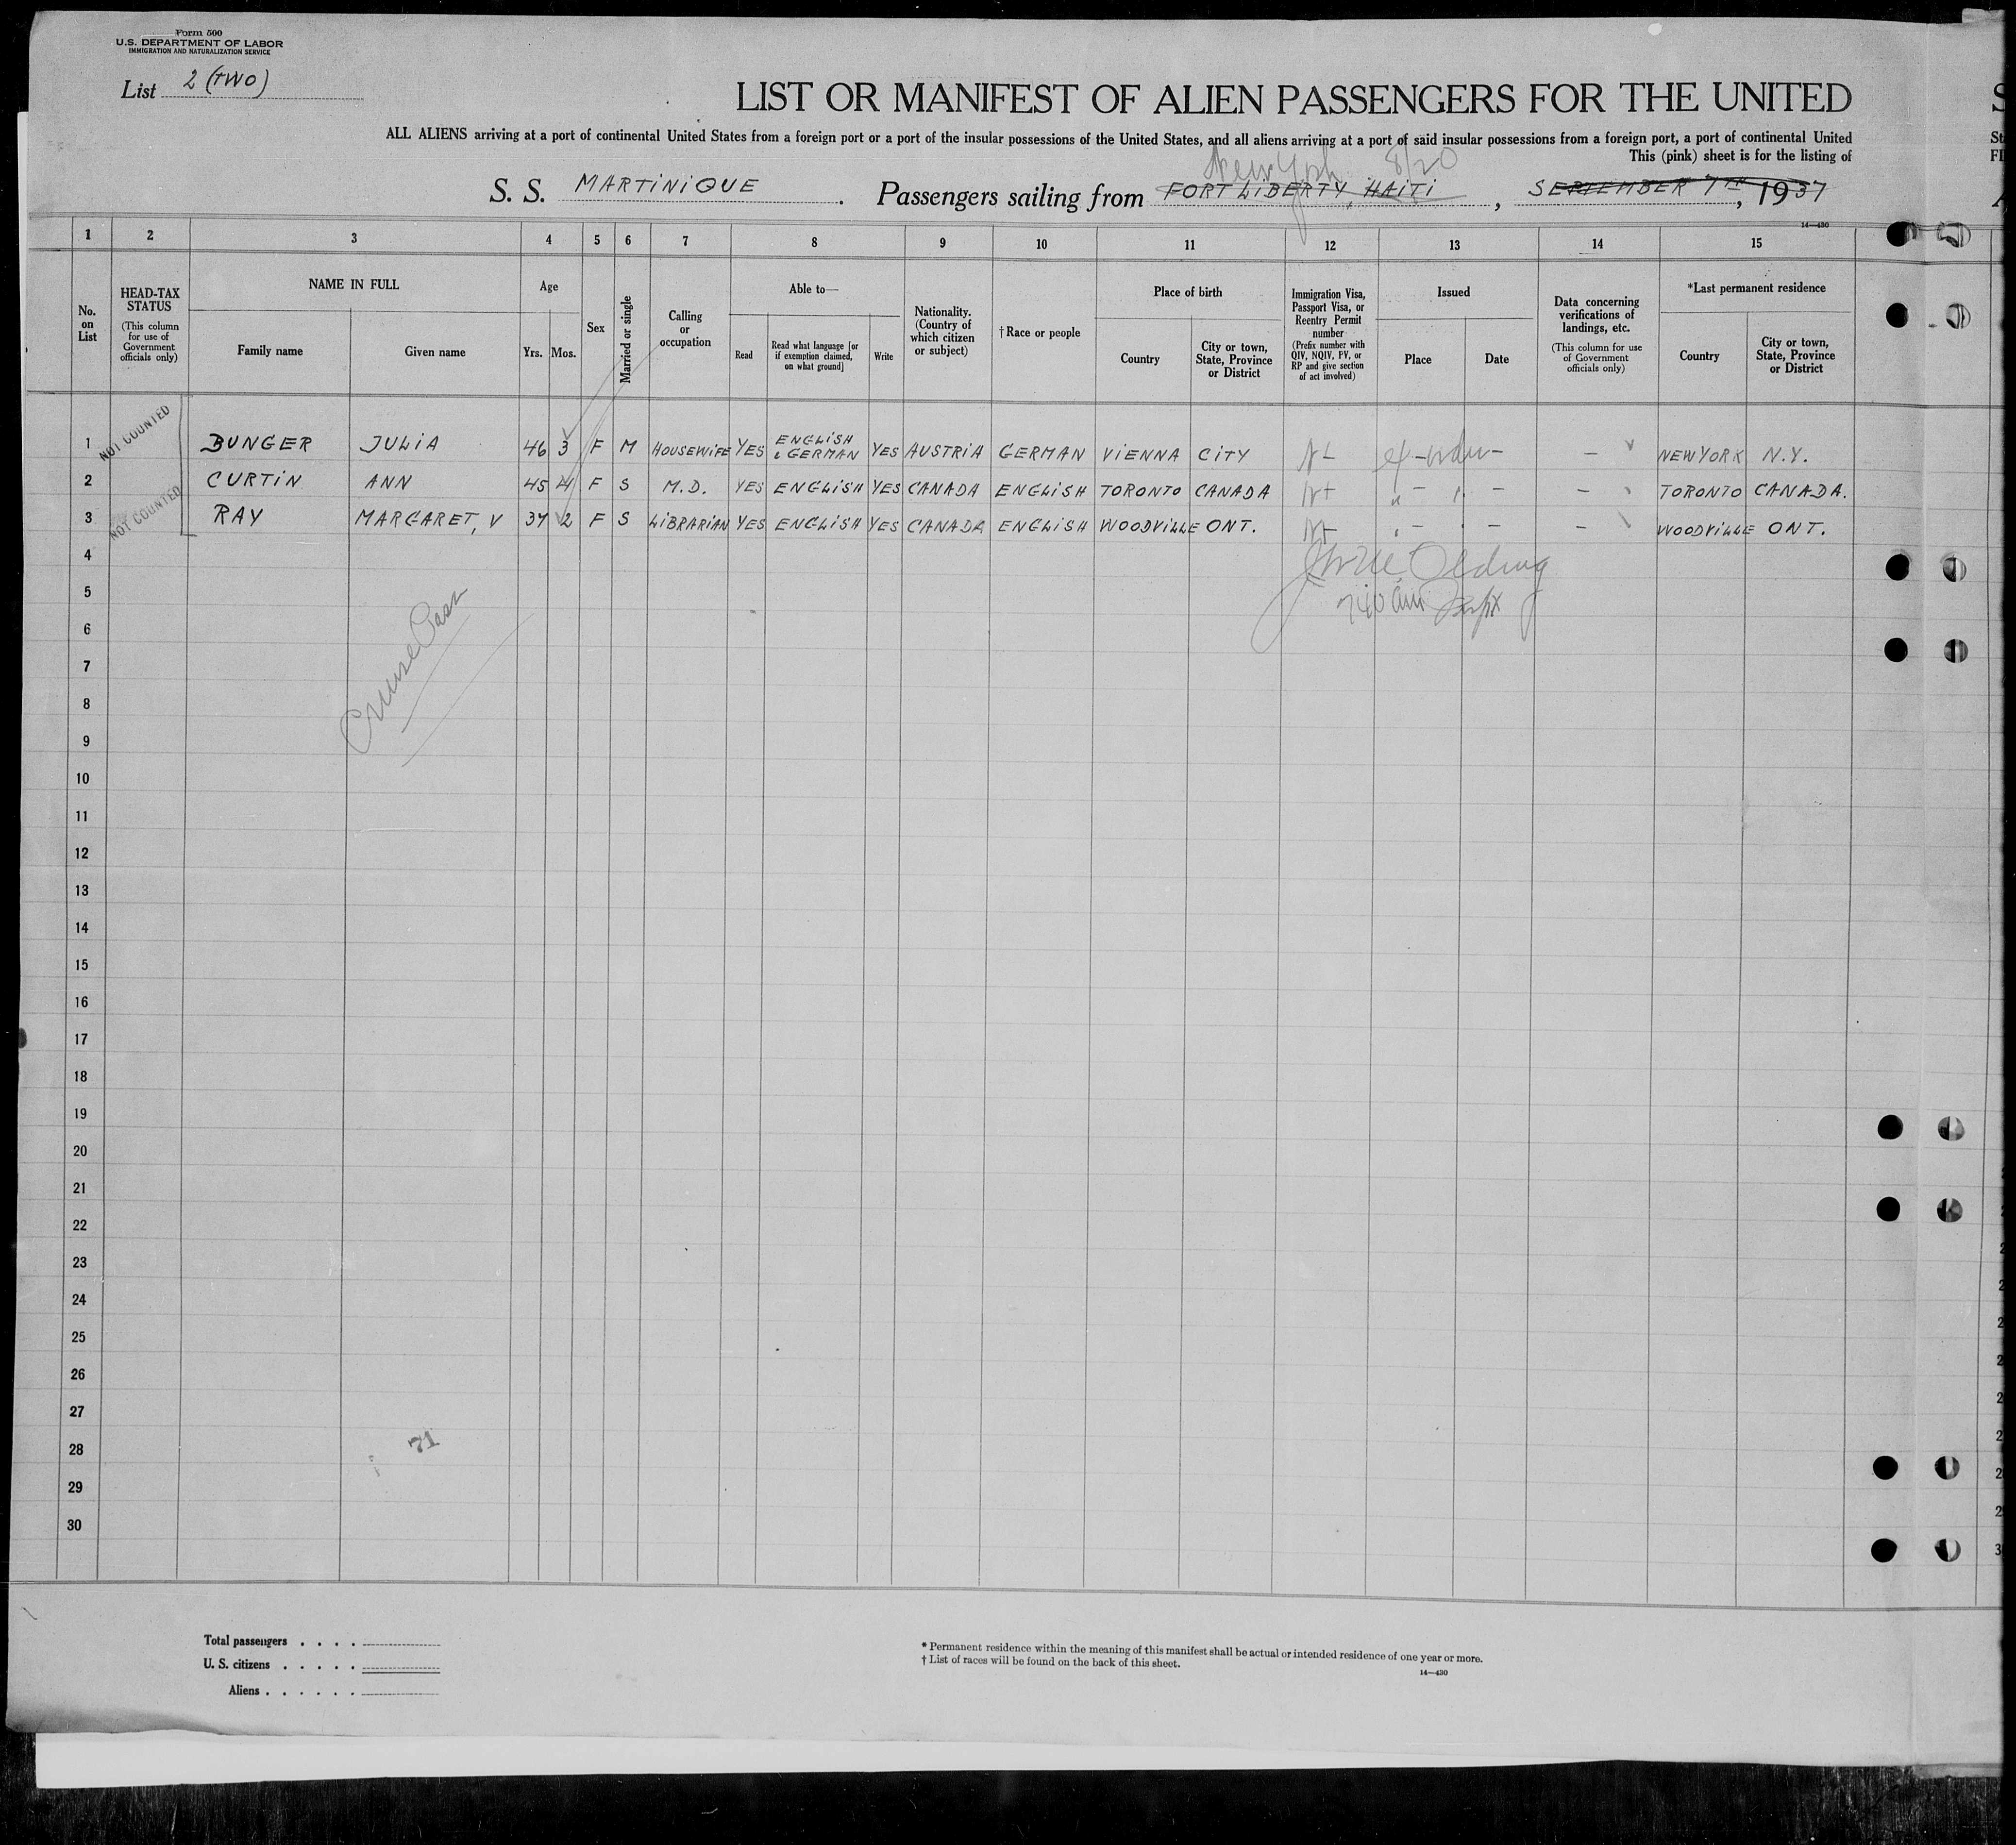 Form 500
U.S. DEPARTMENT OF LABOR
IMMIGRATION AND NATURALIZATION SERVICE
List 2 (TWO)
LIST OR MANIFEST OF ALIEN PASSENGERS FOR THE UNITED
ALL ALIENS arriving at a port of continental United States from a foreign port or a port of the insular possessions of the United States, and all aliens arriving at a port of said insular possessions from a foreign port, a port of continental United
This (pink) sheet is for the listing of
New York 8/20
S. S. MARTINIQUE. Passengers sailing from FORT LIBERTY, HAITI, SEPTEMBER 7TH, 1937
14—430
1 2 3 4 5 6 7 8 9 10 11 12 13 14 15
No. on List
HEAD-TAX STATUS
(This column for use of Government officials only)
NAME IN FULL
Family name
Given name
Age
Yrs. Mos.
Sex
Married or single
Calling or occupation
Able to—
Read
Read what language [or if exemption claimed, on what ground]
Write
Nationality. (Country of which citizen or subject)
†Race or people
Place of birth
Country
City or town, State, Province or District
Immigration Visa, Passport Visa, or Reentry Permit number
(Prefix number with QIV, NQIV, PV, or RP and give section of act involved)
Issued
Place
Date
Data concerning verifications of landings, etc.
(This column for use of Government officials only)
*Last permanent residence
Country
City or town, State, Province or District
NOT COUNTED
1 BUNGER JULIA 46 3 F M HOUSEWIFE YES ENGLISH & GERMAN YES AUSTRIA GERMAN VIENNA CITY — NEW YORK N.Y.
2 CURTIN ANN 45 4 F S M.D. YES ENGLISH YES CANADA ENGLISH TORONTO CANADA " — " — — TORONTO CANADA.
NOT COUNTED
3 RAY MARGARET, V 37 2 F S LIBRARIAN YES ENGLISH YES CANADA ENGLISH WOODVILLE ONT. — WOODVILLE ONT.
4
5
740 am
6
Cruise Pass
7
8
9
10
11
12
13
14
15
16
17
18
19
20
21
22
23
24
25
26
27
28
71
29
30
Total passengers
U. S. citizens
Aliens
* Permanent residence within the meaning of this manifest shall be actual or intended residence of one year or more.
† List of races will be found on the back of this sheet.
14—430